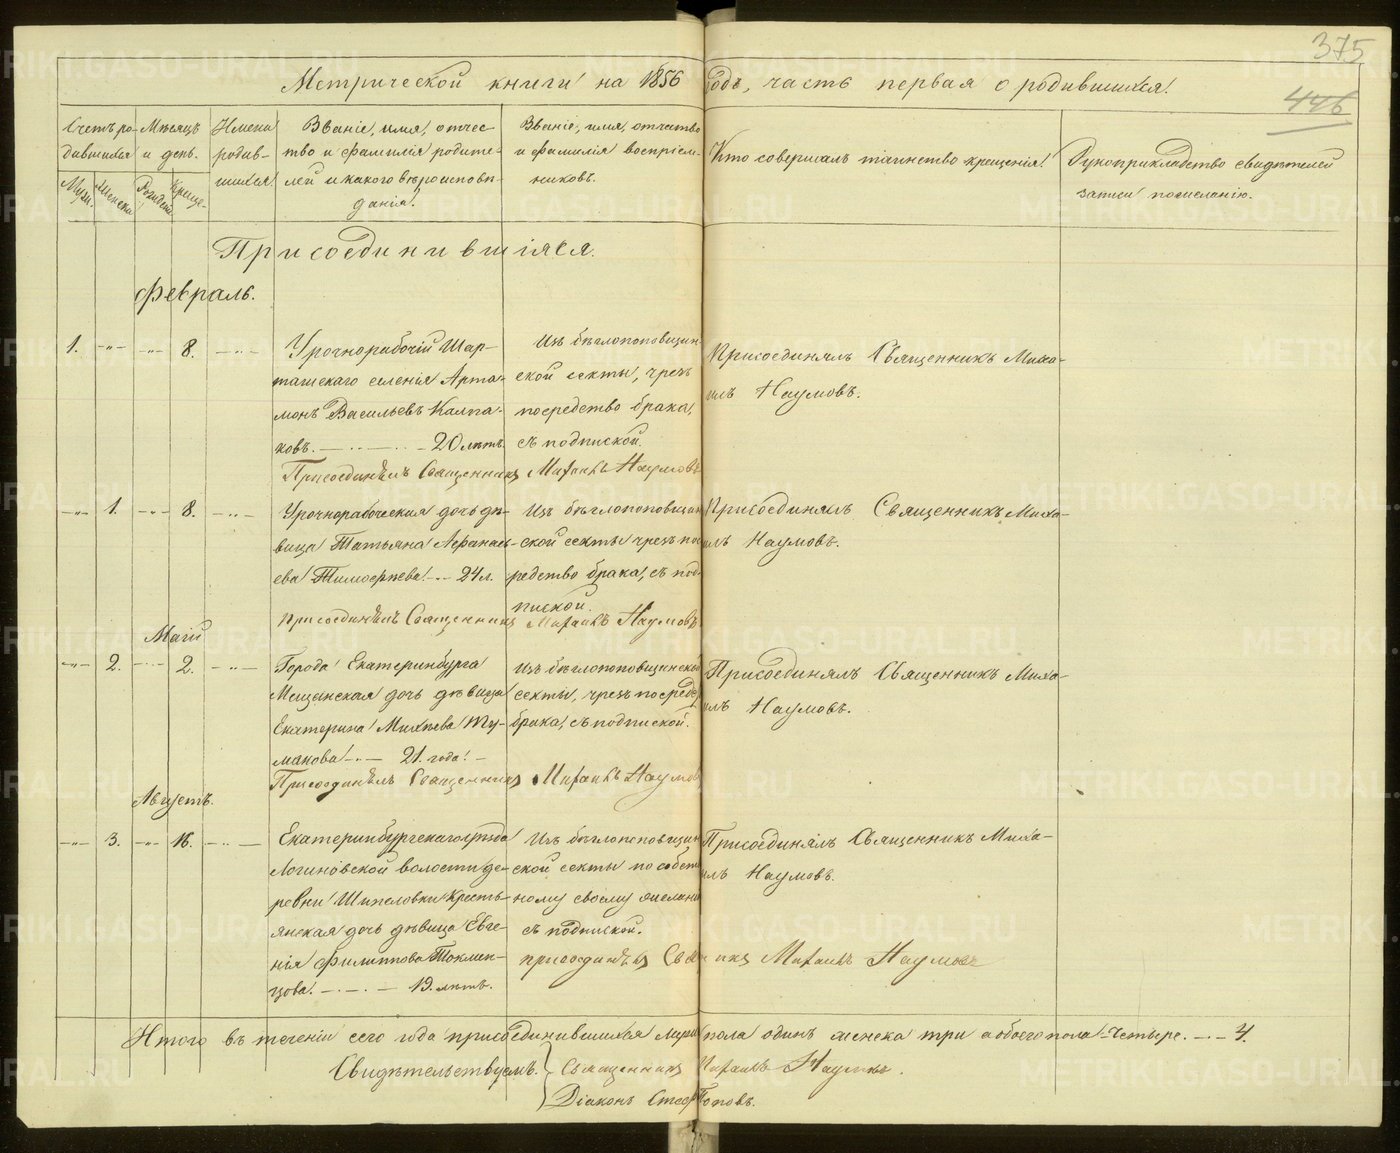 375
446
Метрической книги на 1856 годъ, часть первая о родившихся.
Счетъ ро-
дившихся
Муж. Женска
Мѣсяцъ
и день.
Рожденія Креще-
Имена
родив-
шихся
Званіе, имя, отчес
тво и фамилія родите-
лей и какого вѣроисповѣ-
данія.
Званіе, имя, отчество
и фамилія воспріем-
никовъ.
Кто совершалъ таинство крещенія
Рукоприкладство свидѣтелей
записи по желанію.
Присоединившіяся.
Февраль.
1. -"- -"- 8. -"-
Урочнорабочій Шар-
ташскаго селенія Арта-
монъ Васильевъ Колпа-
ковъ. 20 лѣтъ.
Изъ бѣглопоповщин
ской секты, чрезъ
посредство брака,
съ подпиской.
Присоединялъ Священникъ Миха-
илъ Наумовъ.
Присоединѣлъ Священникъ Михаилъ Наумовъ
-"- 1. -"- 8. -"-
Урочнорабочская дочь дѣ-
вица Татьяна Афанась-
ева Тимофѣева 24 л.
Изъ бѣглопоповщин
ской секты чрезъ пос
редство брака, съ под-
пиской.
Присоединялъ Священникъ Миха-
илъ Наумовъ.
Присоединѣлъ Священникъ Михаилъ Наумовъ
Маій
-"- 2. -"- 2. -"-
Города Екатеринбурга
Мещанская дочь дѣвица
Екатерина Михѣева Ту-
макова 21. года.
Изъ бѣглопоповщинской
секты, чрезъ посред
брака, съ подпиской.
Присоединялъ Священникъ Миха-
илъ Наумовъ.
Присоединѣлъ Священникъ Михаилъ Наумов
Августъ.
-"- 3. -"- 16. -"-
Екатеринбургскаго уѣзда
Логиновской волости де-
ревни Шипеловки Кресть-
янская дочь дѣвица Евге-
нія Филиппова Токмен-
цова. 19. лѣтъ.
Изъ бѣглопоповщин
ской секты по собств
ному своему желанію
съ подпиской.
Присоединялъ Священникъ Миха-
илъ Наумовъ.
присоединѣлъ Священникъ Михаилъ Наумовъ
Итого въ теченіи сего года присоединившихся мужи пола одинъ женска три а обоего пола Четыре. 4.
Свидѣтельствуемъ. Священникъ Михаилъ Наумовъ.
Діаконъ Стеф Поповъ.